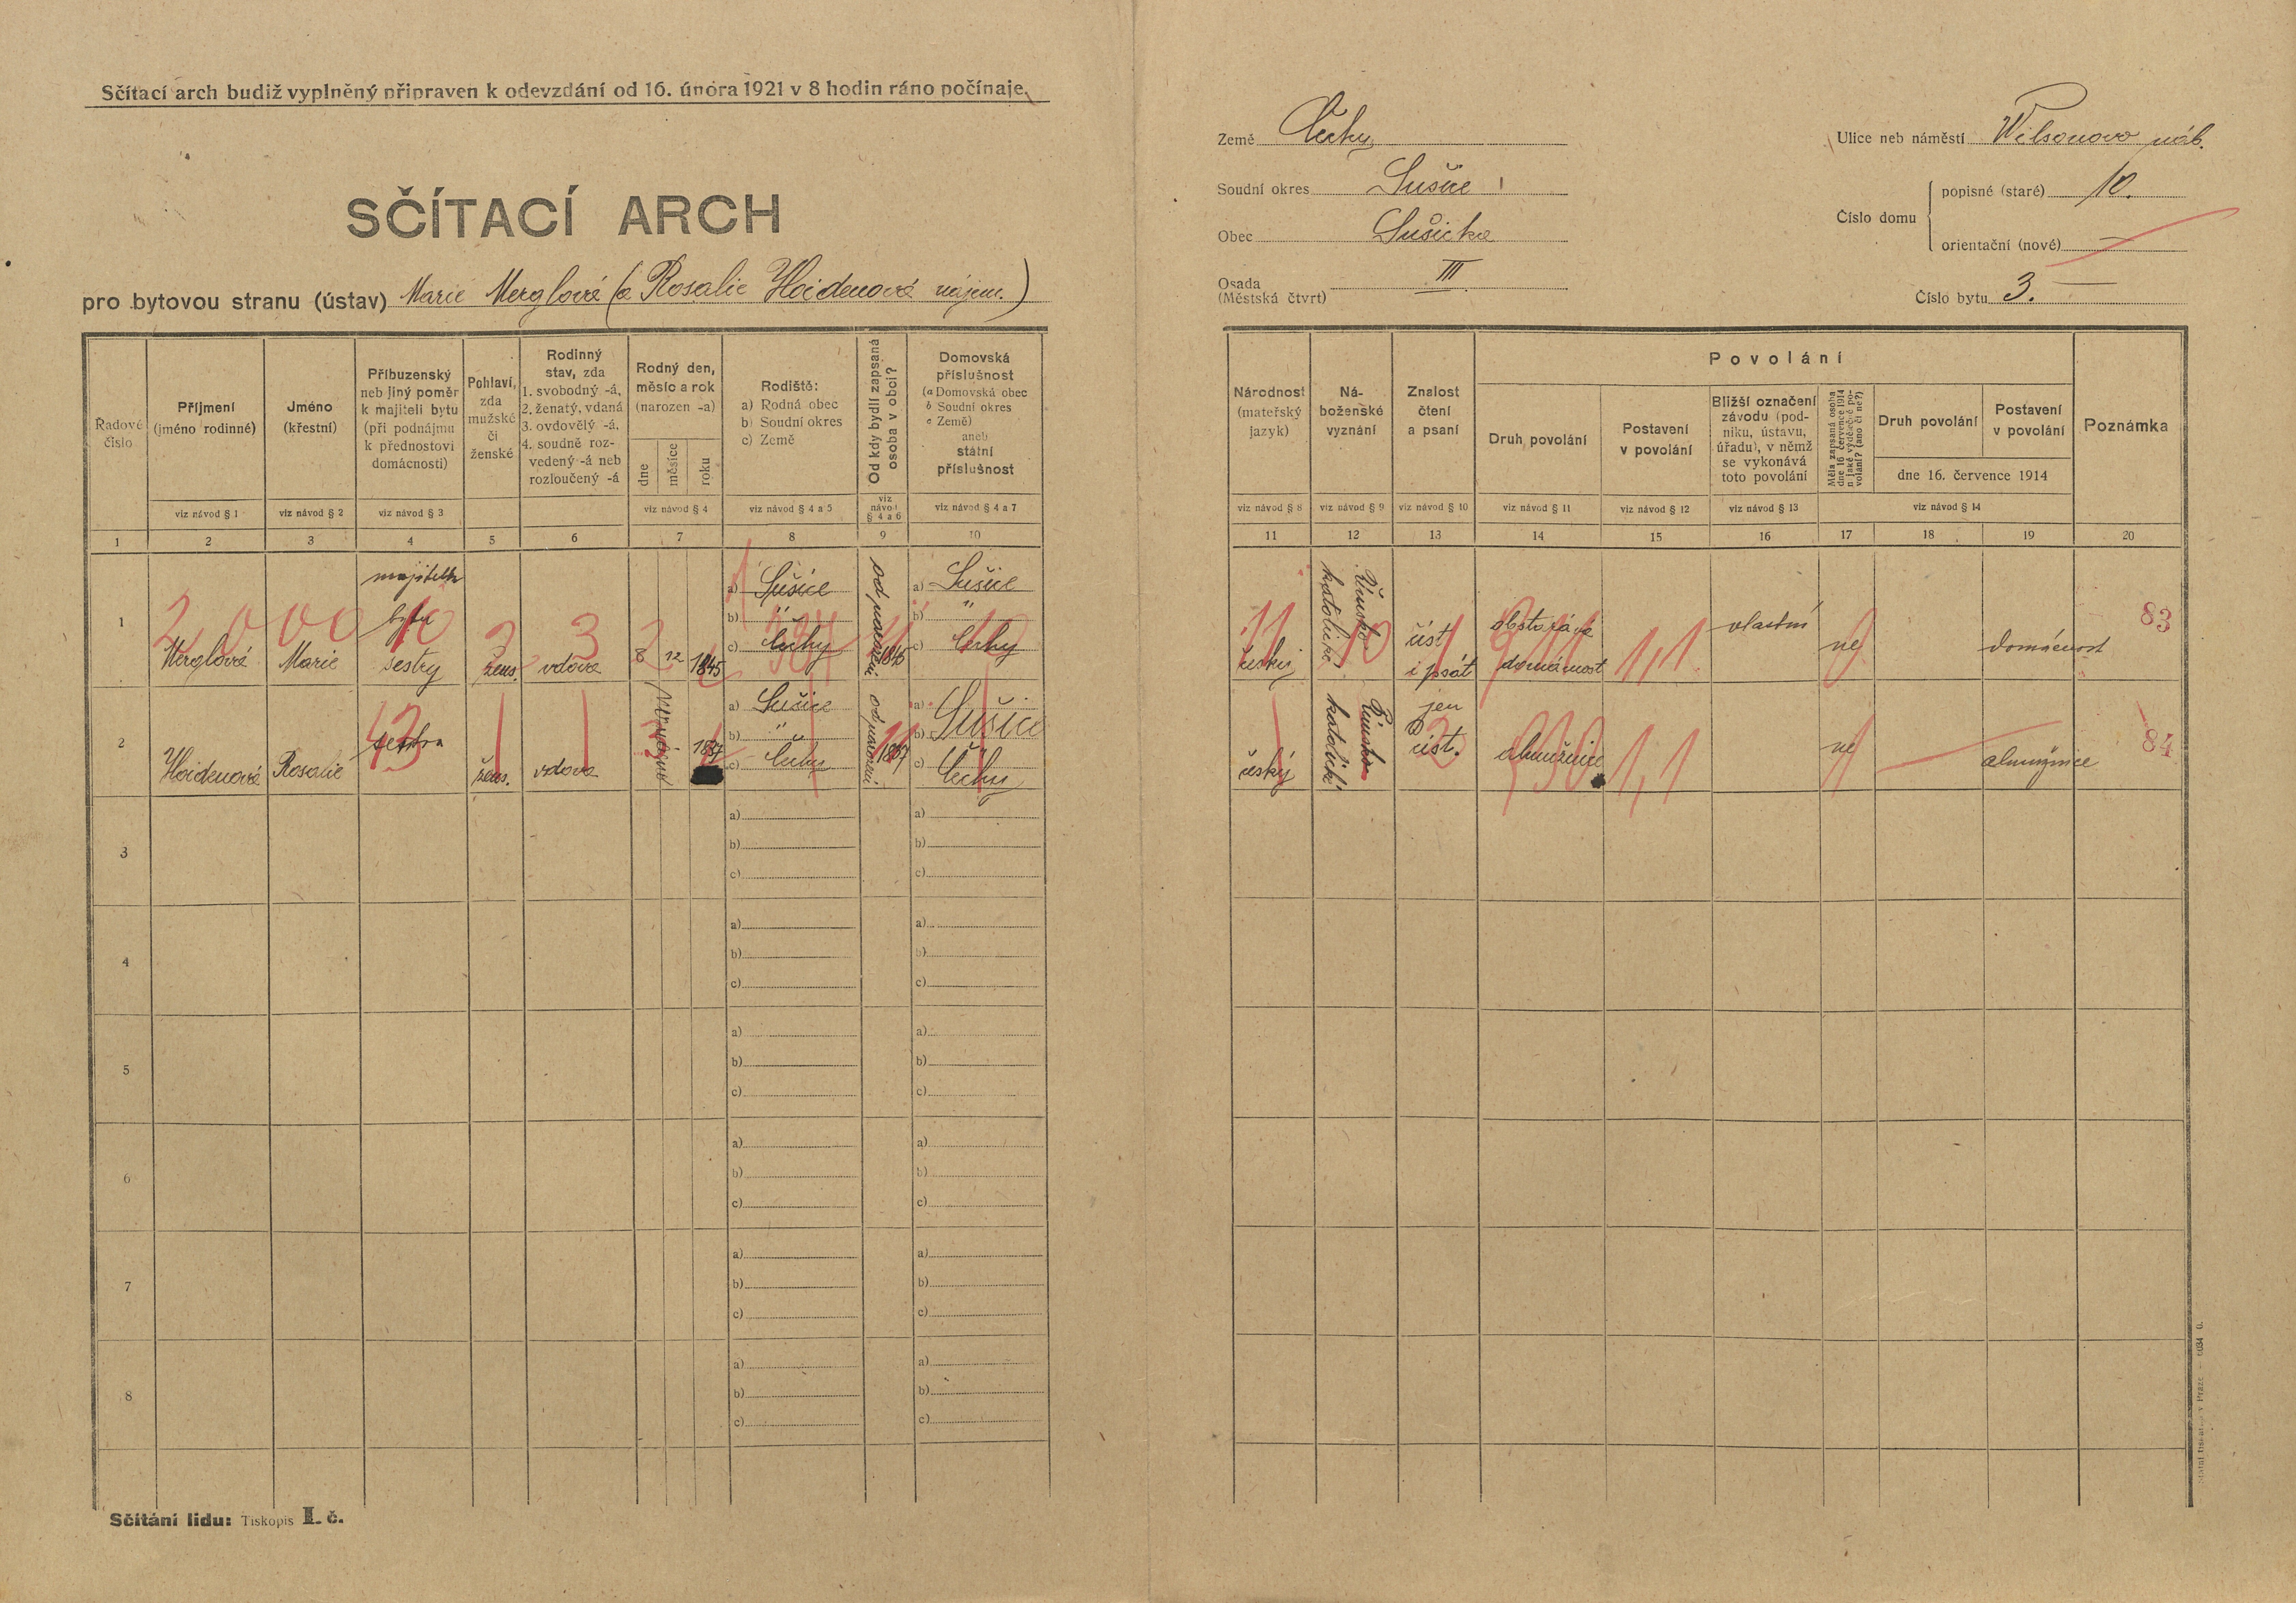 Sčítací arch budiž vyplněný připraven k odevzdání od 16. února 1921 v 8 hodin ráno počínaje.
SČÍTACÍ ARCH
pro bytovou stranu (ústav) Marie Merglová (a Rosalie Hoidenová nájem.)
Země Čechy
Soudní okres Sušice
Obec Sušicka
Osada
(Městská čtvrt) III
Ulice neb náměstí Wilsonovo náb.
Číslo domu
popisné (staré) 10.
orientační (nové) —
Číslo bytu 3. —
Řadové číslo
Příjmení
(jméno rodinné)
Jméno
(křestní)
Příbuzenský
neb jiný poměr
k majiteli bytu
(při podnájmu
k přednostovi
domácnosti)
Pohlaví,
zda
mužské
či
ženské
Rodinný
stav, zda
1. svobodný -á,
2. ženatý, vdaná
3. ovdovělý -á.
4. soudně roz-
vedený -á neb
rozloučený -á
Rodný den,
měsíc a rok
(narozen -a)
dne
měsíce
roku
Rodiště:
a) Rodná obec
b) Soudní okres
c) Země
Od kdy bydlí zapsaná
osoba v obci?
Domovská
příslušnost
(a Domovská obec
b Soudní okres
c Země)
aneb
státní
příslušnost
viz návod § 1
viz návod § 2
viz návod § 3
viz návod § 4
viz návod § 4 a 5
viz
návod
§ 4 a 6
viz návod § 4 a 7
1 2 3 4 5 6 7 8 9 10
Národnost
(mateřský
jazyk)
Ná-
boženské
vyznání
Znalost
čtení
a psaní
Povolání
Druh povolání
Postavení
v povolání
Bližší označení
závodu (pod-
niku, ústavu,
úřadu), v němž
se vykonává
toto povolání
Měla zapsaná osoba
dne 16 července 1914
nějaké výdělečné po-
volání? (ano či ne?)
Druh povolání
Postavení
v povolání
dne 16. července 1914
Poznámka
viz návod § 8
viz návod § 9
viz návod § 10
viz návod § 11
viz návod § 12
viz návod § 13
viz návod § 14
11 12 13 14 15 16 17 18 19 20
1
Merglová
Marie
majitelk
bytu
sestry
žens.
vdova
8 12 1845
a) Sušice
b) "
c) Čechy
od narození
1845
a) Sušice
b) "
c) Čechy
český
Římsko
katolické
číst
i psát
obstarává
domácnost
vlastní
ne
domácnost
83
2
Hoidenová
Rosalie
sestra
žens.
vdova
1837
a) Sušice
b) "
c) Čechy
od narození
a) Sušice
b)
c) Čechy
český
Římsko
katolické
jen
číst.
almužnice
ne
almužnice
84
3
a)
b)
c)
a)
b)
c)
4
a)
b)
c)
a)
b)
c)
5
a)
b)
c)
a)
b)
c)
6
a)
b)
c)
a)
b)
c)
7
a)
b)
c)
a)
b)
c)
8
a)
b)
c)
a)
b)
c)
Sčítání lidu: Tiskopis I. č.